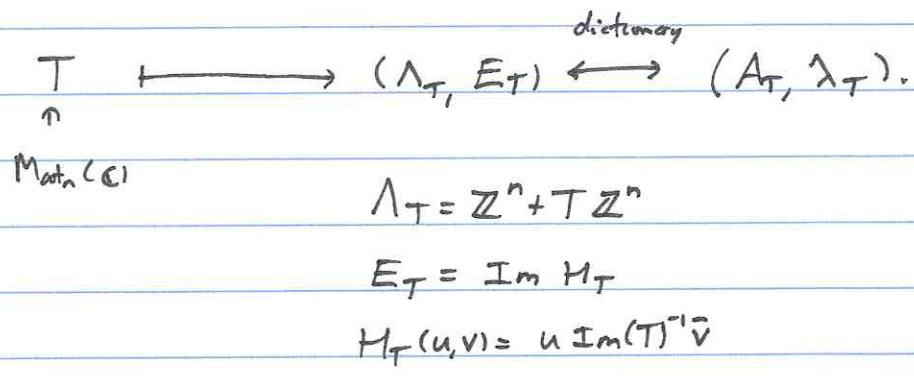 dictionary
T ⟼ (Λ_T, E_T) ⟷ (A_T, λ_T).
↑
Mat_n(ℂ)
Λ_T = ℤ^n + T ℤ^n
E_T = Im H_T
H_T(u,v) = u Im(T)^{-1} v̄